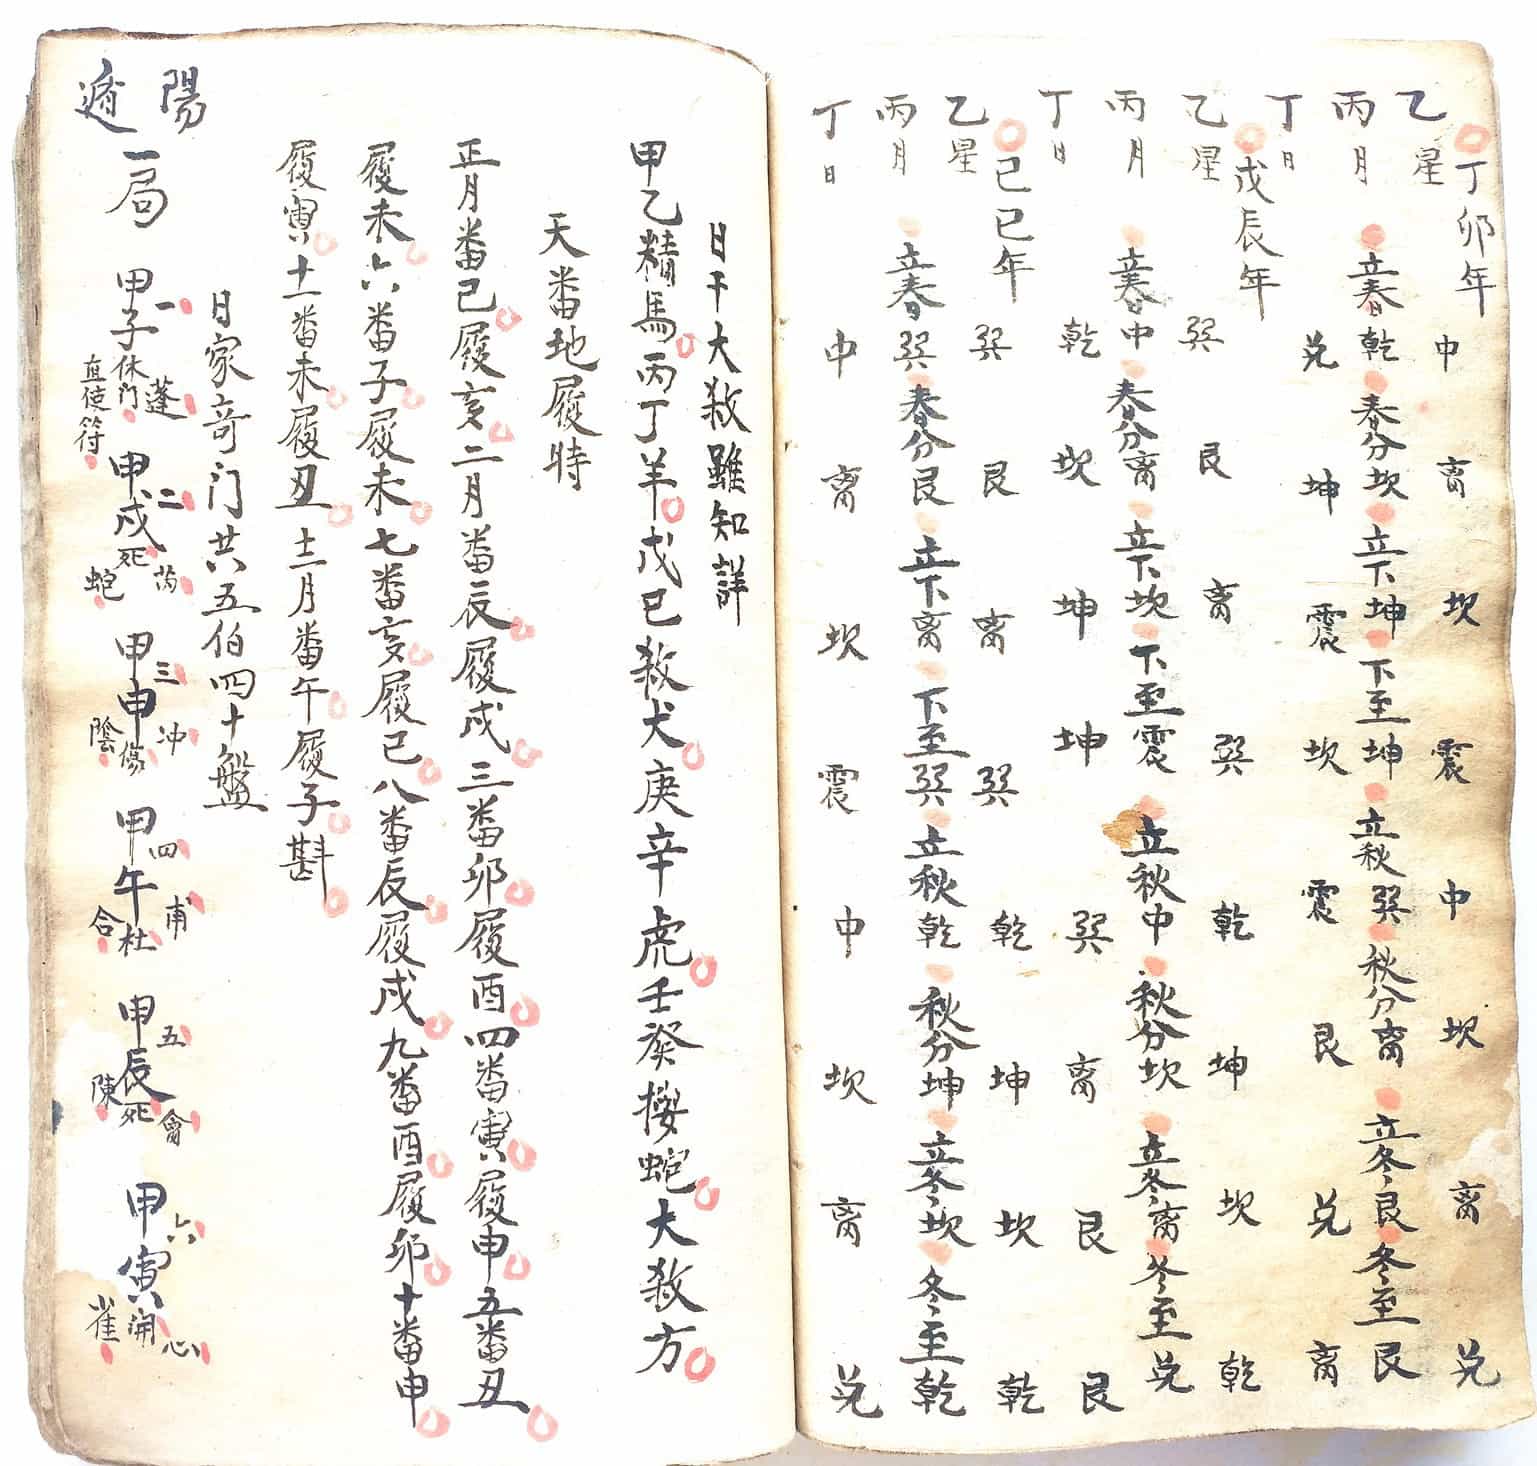 丁卯年
乙星 中 离 坎 震 中 坎 离 兑
丙月 立春日乾 春分坎 立下坤 下至坤 立秋巽 秋分离 立冬艮 冬至艮
丁日 兑 坤 震 坎 震 艮 兑 离
戊辰年
乙星 巽 艮 离 巽 乾 坤 坎 乾
丙月 立春日中 春分离 立下坎 下至震 立秋中 秋分坎 立冬离 冬至兑
丁日 乾 坎 坤 坤 巽 离 艮 艮
己巳年
乙星 巽 艮 离 巽 乾 坤 坎 乾
丙月 立春日巽 春分艮 立下离 下至巽 立秋乾 秋分坤 立冬坎 冬至乾
丁日 中 离 坎 震 中 坎 离 兑
日干大殺雖知詳
甲乙精馬丙丁羊戊己殺犬庚辛虎壬癸撄蛇大殺方
天番地履特
正月番巳履亥二月番辰履戌三番卯履酉四番寅履申五番丑
履未六番子履未七番亥履巳八番辰履戌九番酉履卯十番申
履寅十一番未履丑十二月番午履子斟
日家奇门共五伯四十盤
陽遁
一局 甲子一 蓬 休门 直使符 甲戌二 芮 死 蛇 甲申三 冲 傷 陰 甲午四 甫 杜 合 甲辰五 禽 死 陳 甲寅六 心 開 雀